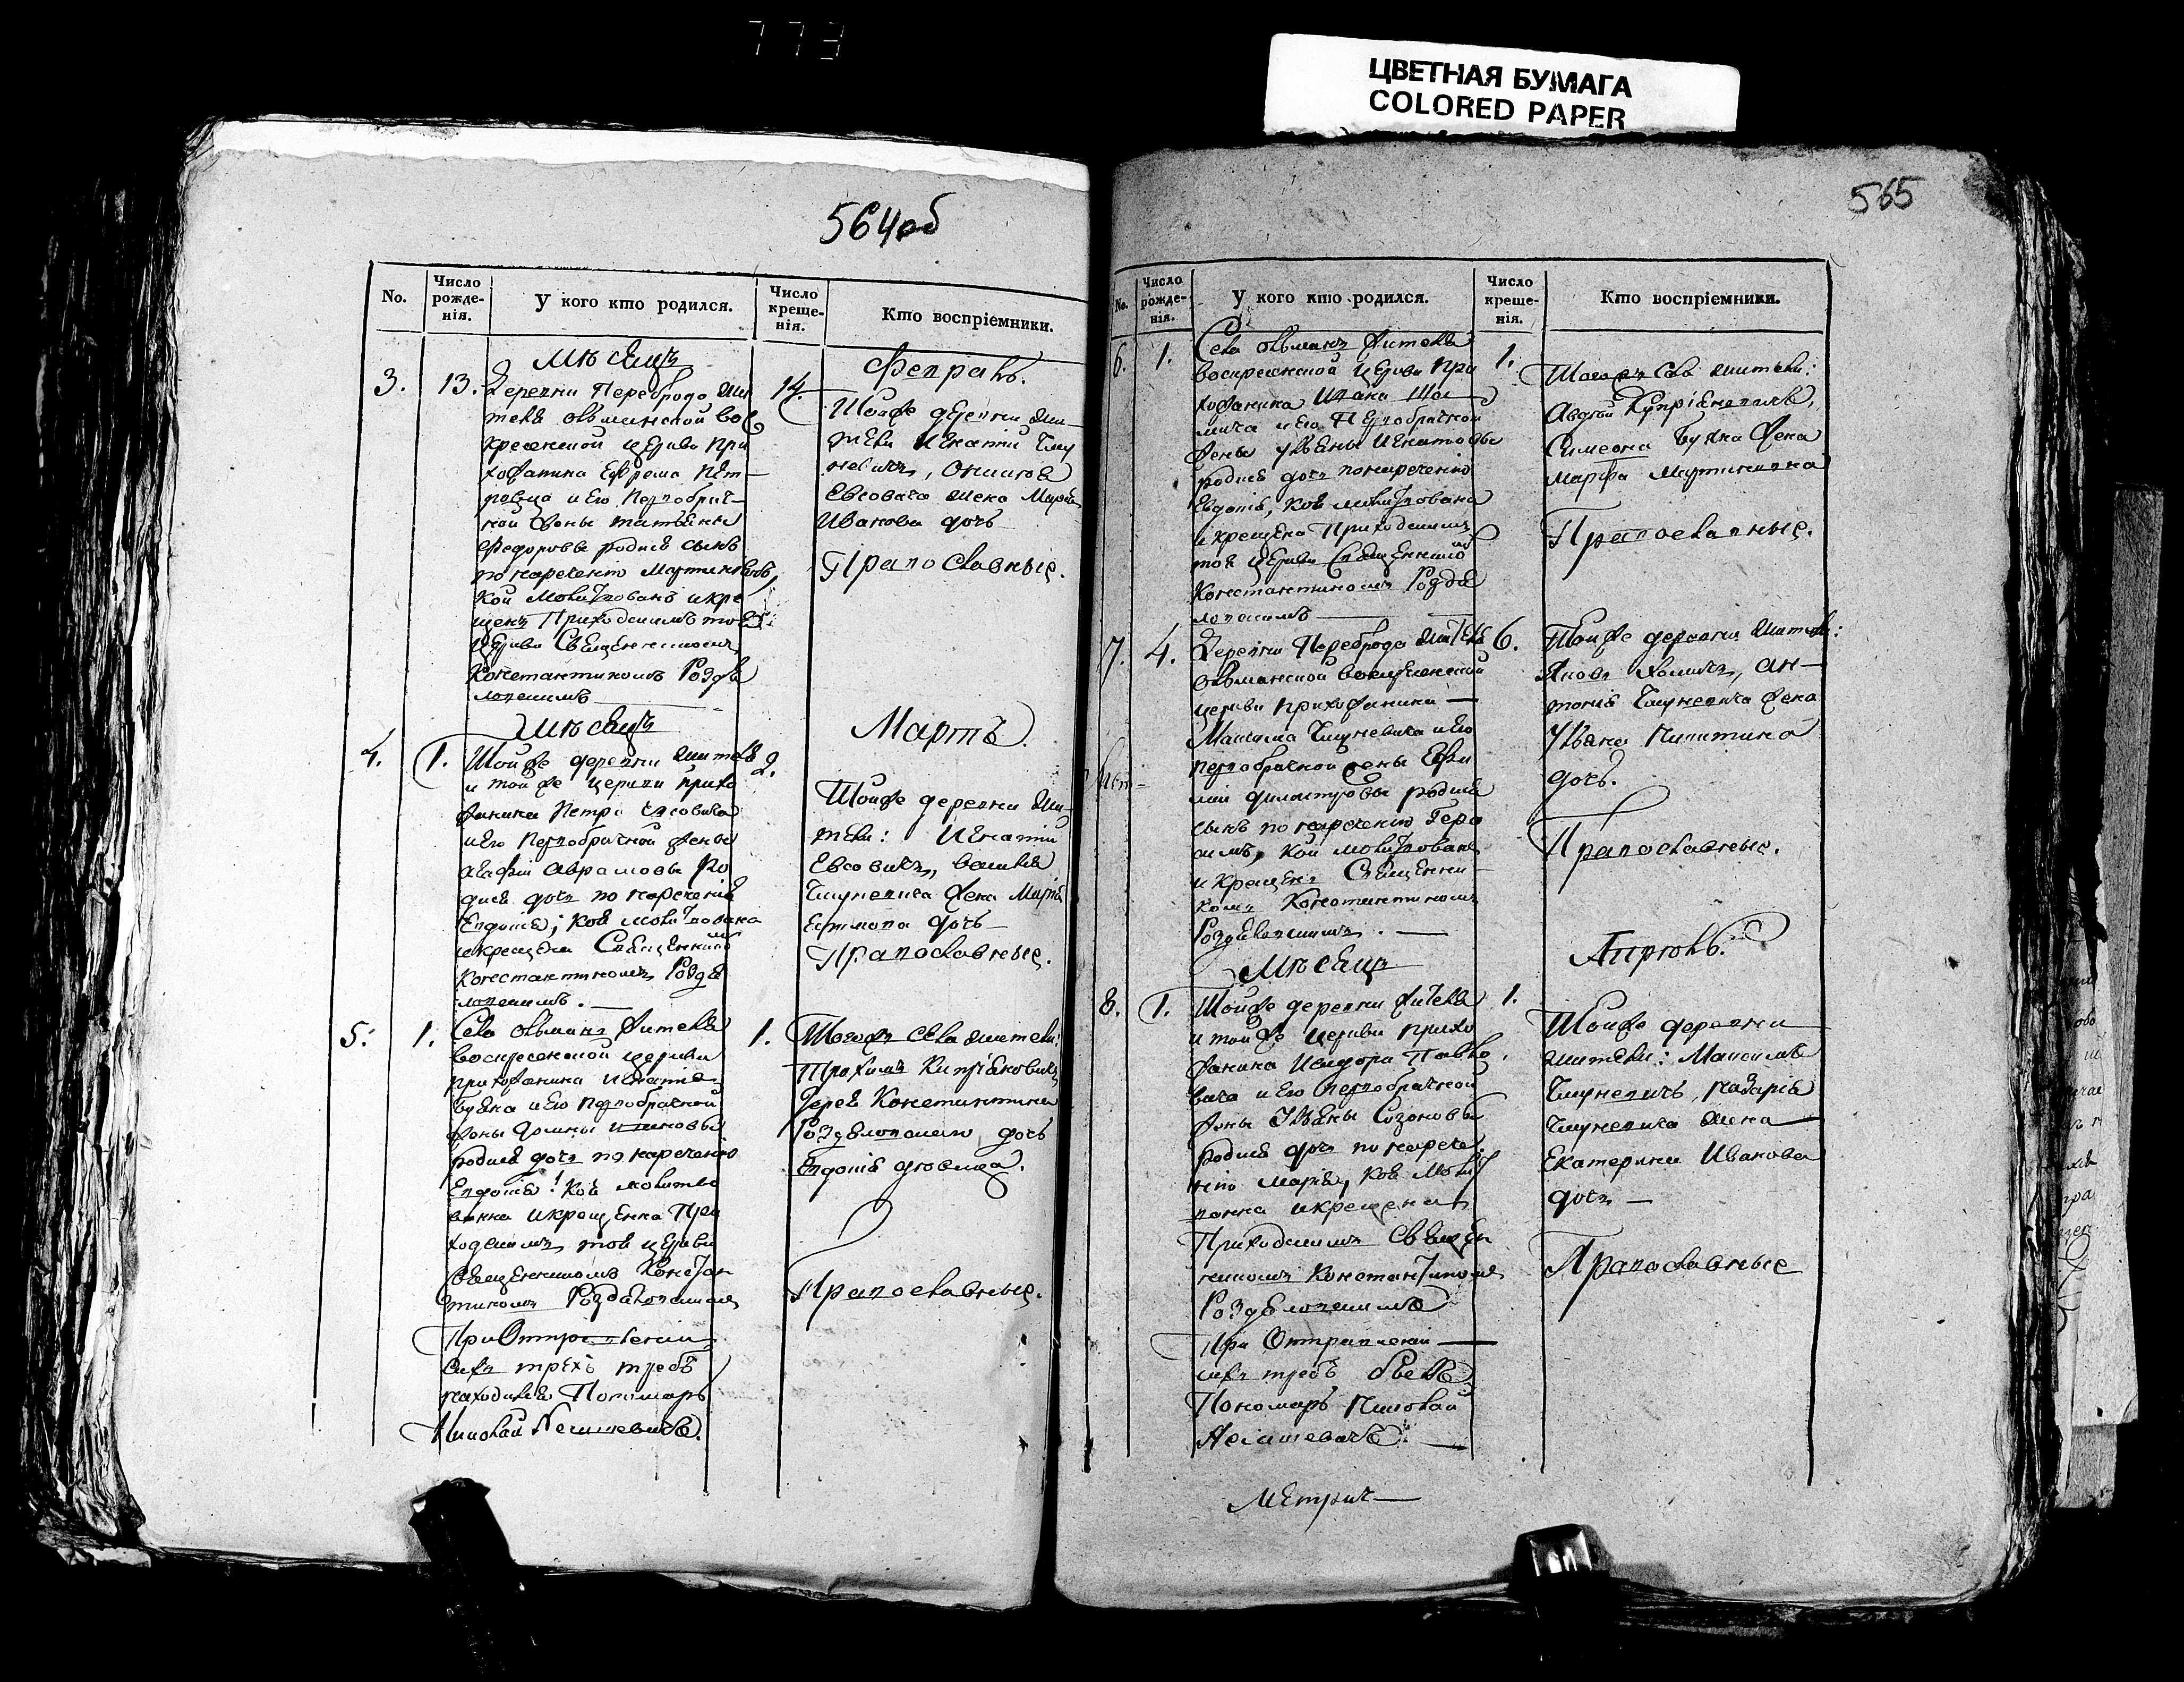 773
ЦВЕТНАЯ БУМАГА
COLORED PAPER
564об
No.
Число рожде-нія.
У кого кто родился.
Число креще-нія.
Кто воспріемники.
Мѣсяцъ
Февраль.
3. 13. Деревни Переброда жи
теля Ольманской вос
кресенской церкви при
хожанина Ефрема Пет
и его первобрач-
ной жены татьяны
Федоровы родися сынъ
по наречению Мартиніянъ,
кой молитвованъ и кре
щенъ Приходскимъ тоя
церкви Священникомъ
Константиномъ Роздя
ловскимъ
14.
Тойже деревни жи-
тели Игнатій Чму
невичъ, Онисима
Евсовича жена Марія
Иванова дочь
Православные.
Мѣсяцъ
Мартъ.
4. 1. Тойже деревни жителя
и тойже церкви прихо
жанина Петра Евсовича
и его первобрачной жены
Агафіи Аврамовы ро
дися дочь по наречению
Евдокія, коя молитвована
и крещена Священникомъ
Константиномъ Роздя
ловскимъ.
2.
Тойже деревни жи-
тели: Игнатій
Евсовичъ,
Чмуневича жена Марія
дочь
Православные.
5. 1. Села Ольманъ жителя
воскресенской церкви
прихожанина Игнатія
Буяна и его первобрачной
жены
родися дочь по наречению
Евдокія: коя молитво
ванна и крещенна При
ходскимъ тоя церкви
Священникомъ Констан
тиномъ Роздяловскимъ
При Отправленіи
сихъ трехъ требъ
находился Пономарь
Николай
1.
Тогожъ села жители:
Прохимъ Кипріяновичъ
Іерея Константина
Роздяловскаго дочь
Евдокія дѣвица.
Православные.
565
No.
Число рожде-нія.
У кого кто родился.
Число креще-нія.
Кто воспріемники.
6. 1. Села Ольманъ жителя
воскресенской церкви при
хожанина Ивана
и его Первобрачной
жены Ульяны Игнатовы
родися дочь по наречению
Евдокія, коя молитвована
и крещена Приходскимъ
тоя церкви Священникомъ
Константиномъ Роздя
ловскимъ
1.
Тогожъ села жители:
Авдей Купріяновичъ,
Симеона Буяна жена
Марфа Мартиновна
Православные.
7. 4. Деревни Переброда жителя
Ольманской воскресенской
церкви прихожанина
Максима Чмуневича и его
первобрачной жены
родися
сынъ по наречению Гера
симъ, кой молитвованъ
и крещенъ Священни-
комъ Константиномъ
Роздяловскимъ.
6.
Тойже деревни жители:
Яковъ Хомичъ, Ан-
тонія Чмуневича жена
Ульяна Никитина
дочь.
Православные.
Мѣсяцъ
Апрѣль.
8. 1. Тойже деревни жителя
и тойже церкви прихо
жанина Исидора Павло
вича и его первобрачной
жены Ульяны Созоновы
родися дочь по нарече
нію Марія, коя молит
вовна и крещена
Приходскимъ Священ
никомъ Константиномъ
Роздяловскимъ
При Отправленіи
сихъ требъ былъ
Пономарь Николай
1.
Тойже деревни
жители: Максимъ
Чмуневичъ, Назарія
Чмуневича жена
Екатерина Иванова
дочь
Православные
Метрич-